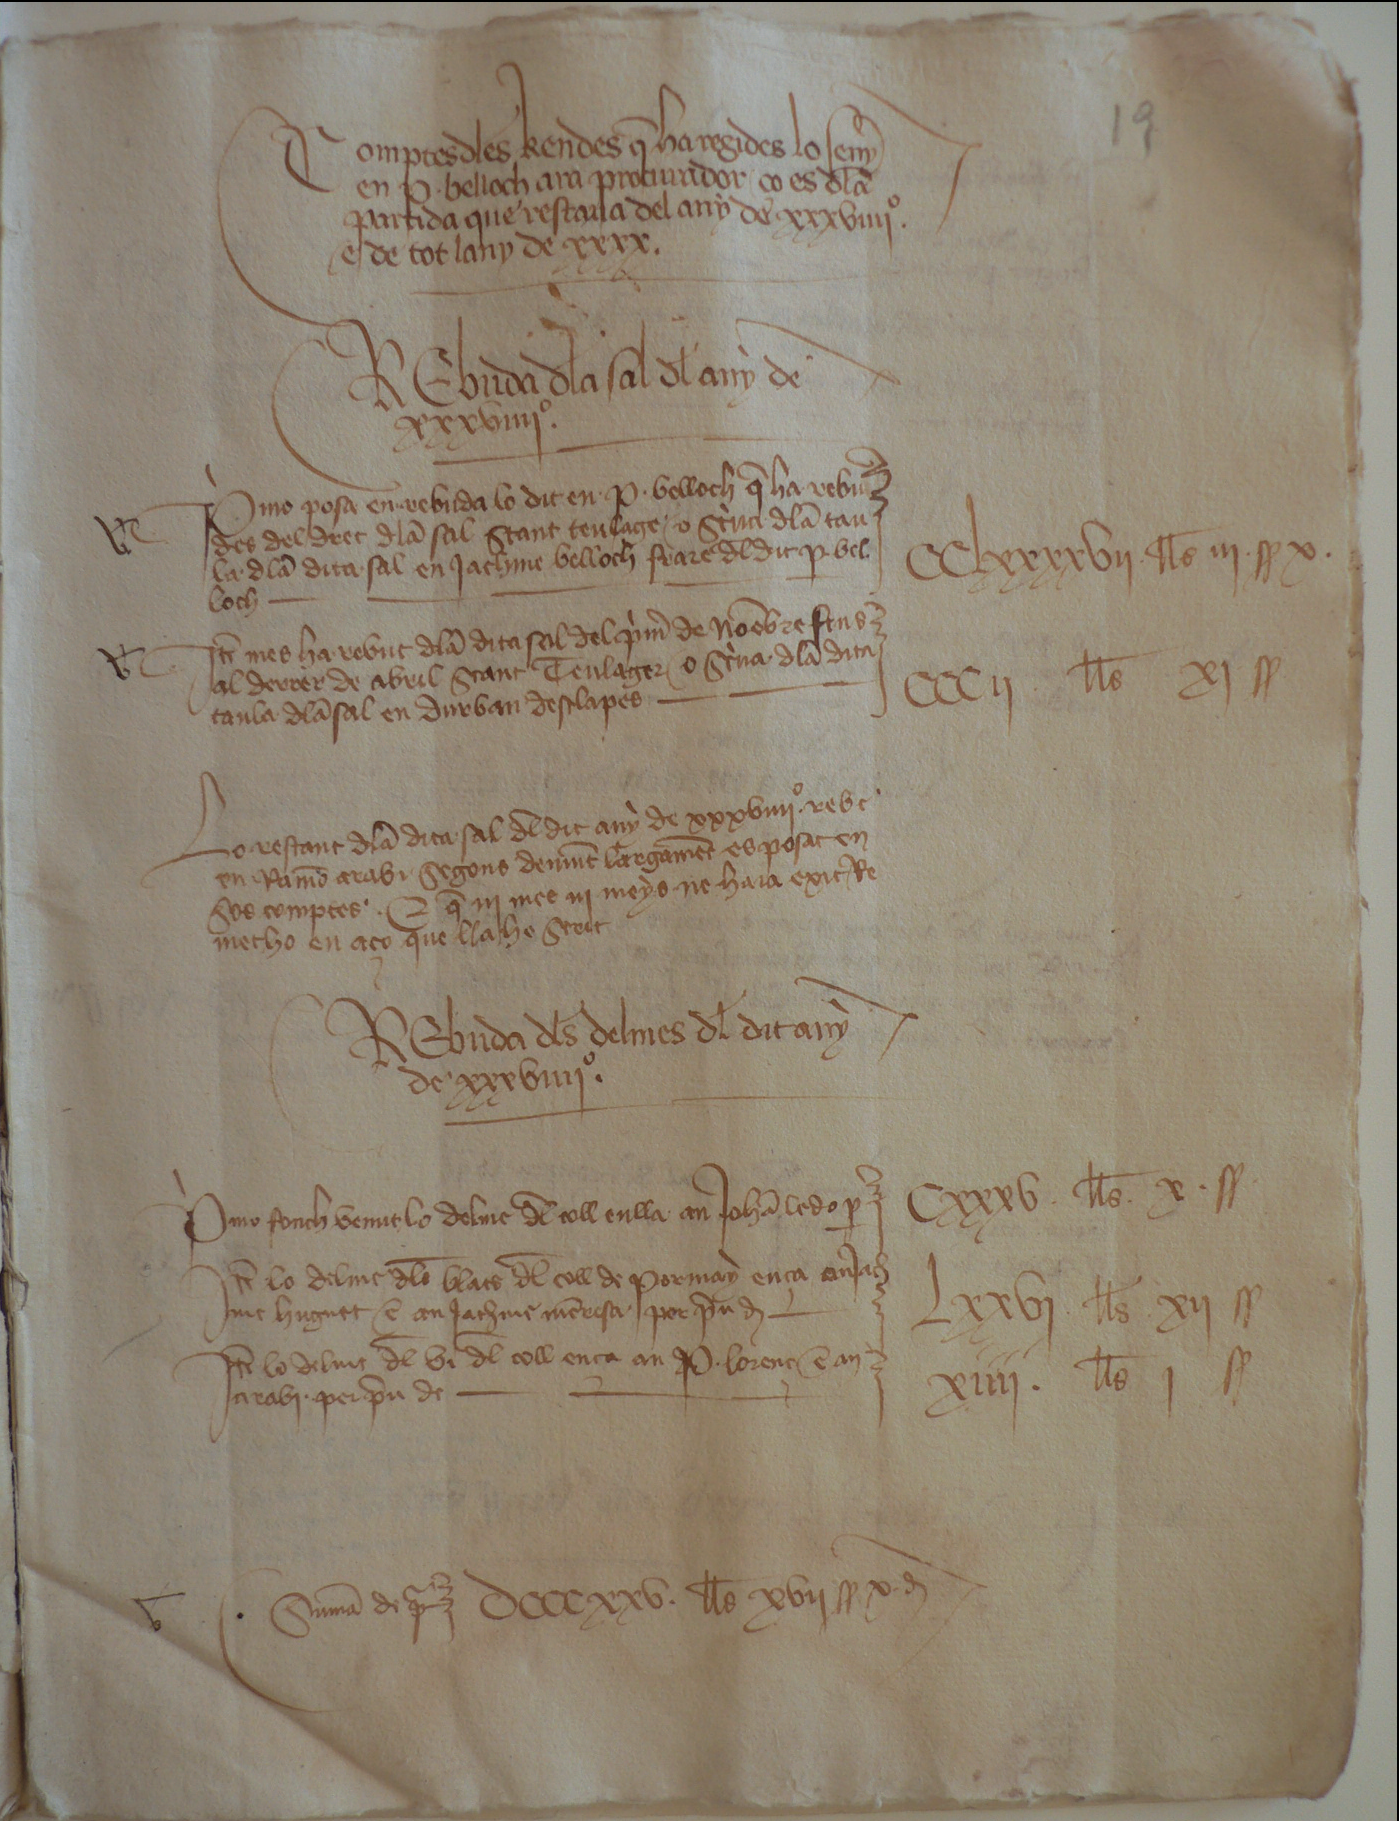 19
Comptes dles Rendes q̄ ha regides lo seny
en P. belloch ara procurador ço es dla
partida que restaua del any de xxxviiiiº.
e de tot lany de xxxx.
REbuda dla sal dl any de
xxxviiiiº.
Pimo posa en rebuda lo dit en P. belloch q̄ ha rebu
des del dret dla sal stant teulage o scīua dla tau
la dla dita sal en Jachme belloch frare dl dit p. bel
loch
CClxxxxvii lls iii ss x.
Itē mes ha rebut dla dita sal del pim̄ de Noēbre fins
al derrer de abril stant Teulager o scīua dla dita
taula dla sal en Durban desclapes
CCCii lls xi ss
Lo restant dla dita sal dl dit any de xxxviiiiº. rebe
en Ramō arabi segons deuant largamēt es posat en
sos comptes. E q̄ ni mes ni meys ne haia exit Re
metho en aço que lla he scrit
REbuda dls delmes dl dit any
de xxxviiiiº.
Pimo fonch venut lo delme dl coll enlla an Johā ledo p
Cxxxv. lls. x. ss
Itē lo delme dlo blats dl coll de Pormany ença an Jach
me huguet e an Jachme mēresa per pū d
Lxxvi lls xii ss
Itē lo delme dl vi dl coll ença an P. lorenç e an
arabi. per pū de
xiiii. lls i ss
Summā de p DCCCxxv. lls xvii ss x d